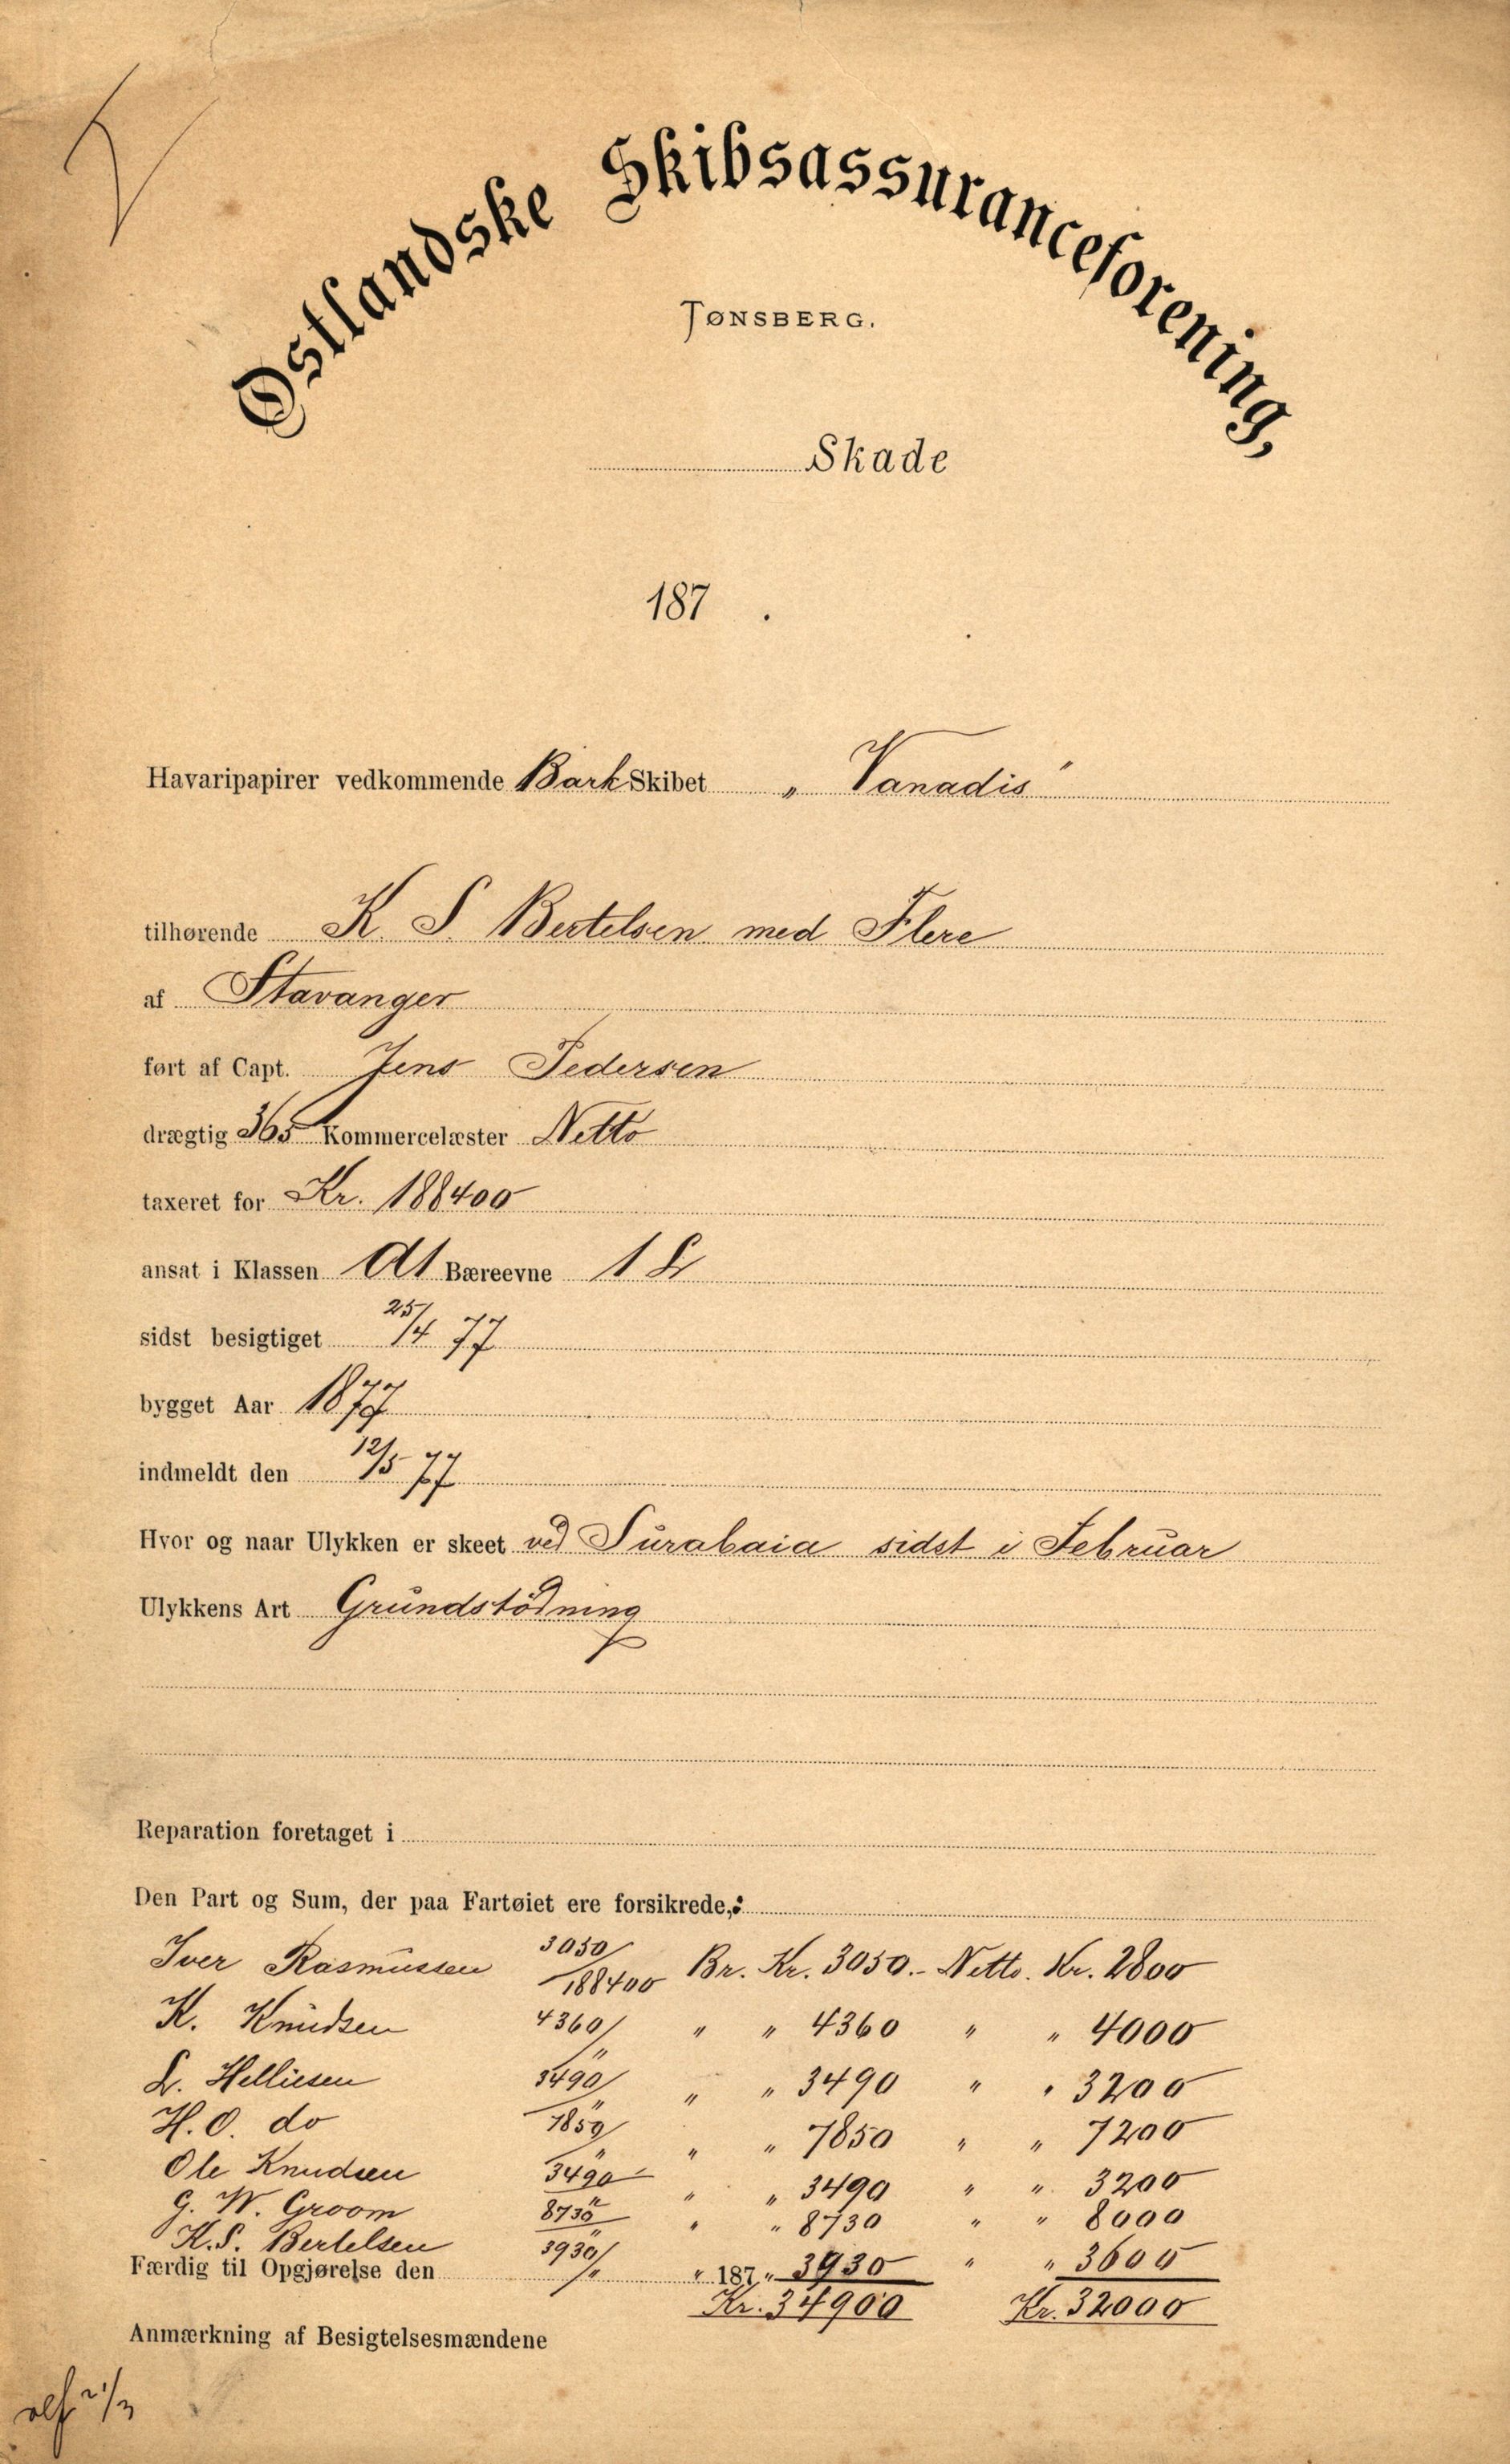 Østlandske Skibsassuranceforening,
TØNSBERG.
Skade
187 .
Havaripapirer vedkommende Bark Skibet „ Vanadis"
tilhørende K. S. Bertelsen med Flere
af Stavanger
ført af Capt. Jens Pedersen
drægtig 365 Kommercelæster Netto
taxeret for Kr. 188400
ansat i Klassen A1 Bæreevne 1
sidst besigtiget 25/4 77
bygget Aar 1877
indmeldt den 12/5 77
Hvor og naar Ulykken er skeet ved Surabaia sidst i Februar
Ulykkens Art Grundstödning
Reparation foretaget i
Den Part og Sum, der paa Fartøiet ere forsikrede,:
Iver Rasmussen 3050/188400 Br. Kr. 3050.- Netto. Kr. 2800
K. Knudsen 4360/" " " 4360 " " 4000
L. Helliesen 3490/" " " 3490 " " 3200
H. O. do 7850/" " " 7850 " " 7200
Ole Knudsen 3490/" " " 3490 " " 3200
G. W. Groom 8730/" " " 8730 " " 8000
K. S. Bertelsen 3930/" " " 3930 " " 3600
Færdig til Opgjørelse den 187
Kr. 34900 Kr. 32000
Anmærkning af Besigtelsesmændene